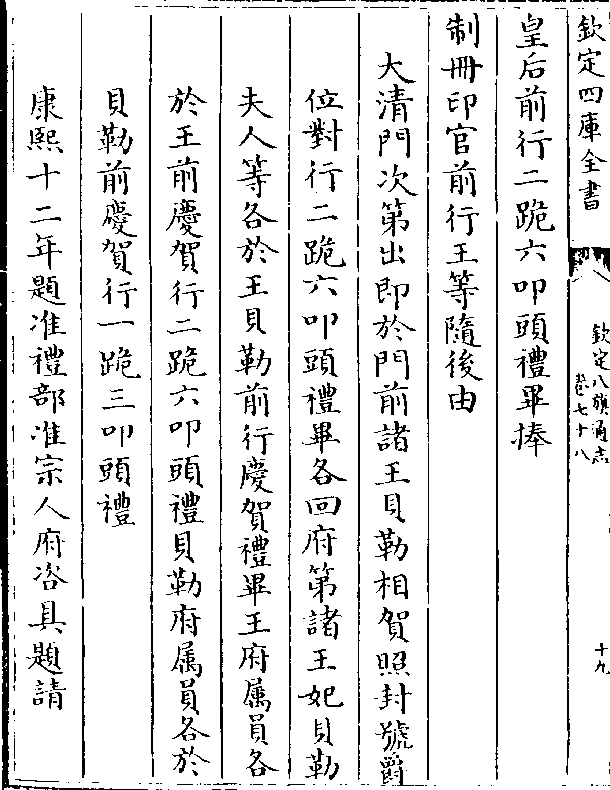 欽定四庫全書
欽定八旗通志
卷七十八
十九
皇后前行二跪六叩頭禮畢捧
制冊印官前行王等隨後由
大清門次第出即於門前諸王貝勒相賀照封號爵
位對行二跪六叩頭禮畢各回府第諸王妃貝勒
夫人等各於王貝勒前行慶賀禮畢王府属員各
於王前慶賀行二跪六叩頭禮貝勒府属員各於
貝勒前慶賀行一跪三叩頭禮
康熙十二年題准禮部准宗人府咨具題請